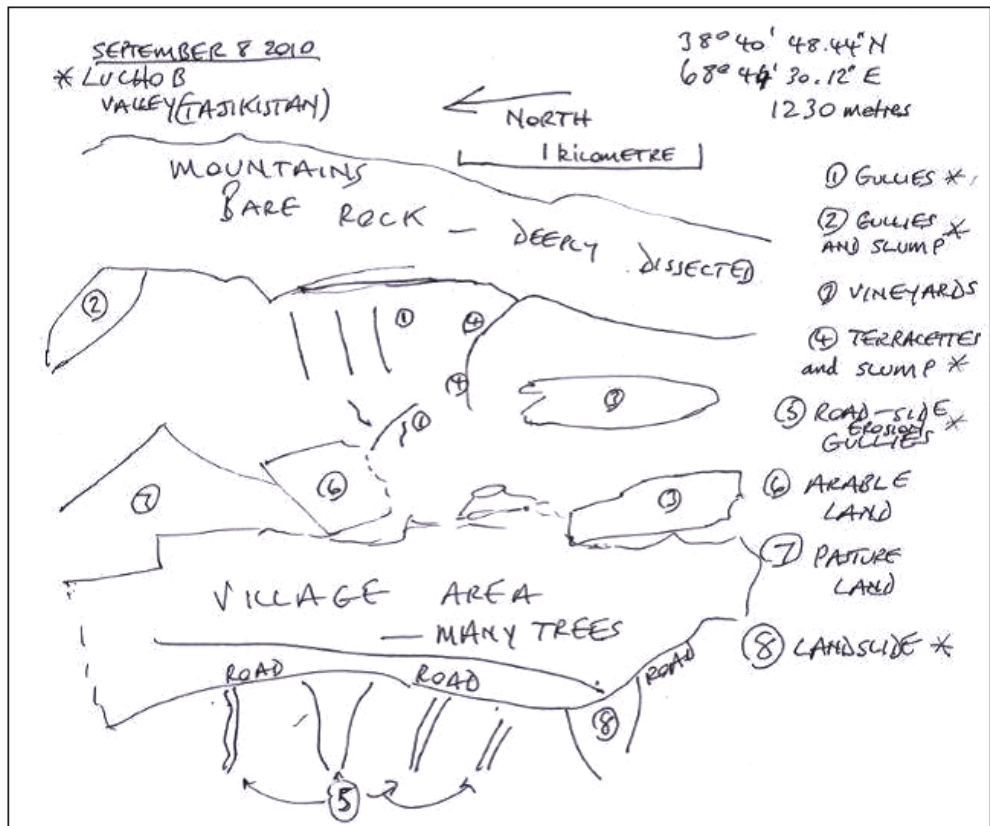 SEPTEMBER 8 2010
* LUCHOB
VALLEY (TAJIKISTAN)
38° 40' 48.44" N
68° 44' 30.12" E
1230 metres
NORTH
1 KILOMETRE
MOUNTAINS
BARE ROCK — DEEPLY DISSECTED
① GULLIES *
② GULLIES
AND SLUMP *
③ VINEYARDS
④ TERRACETTES
and SLUMP *
⑤ ROAD-SIDE
EROSION
GULLIES *
⑥ ARABLE
LAND
⑦ PASTURE
LAND
⑧ LANDSLIDE *
②
①
④
④
③
①
⑦
⑥
③
VILLAGE AREA
— MANY TREES
ROAD
ROAD
ROAD
⑧
⑤